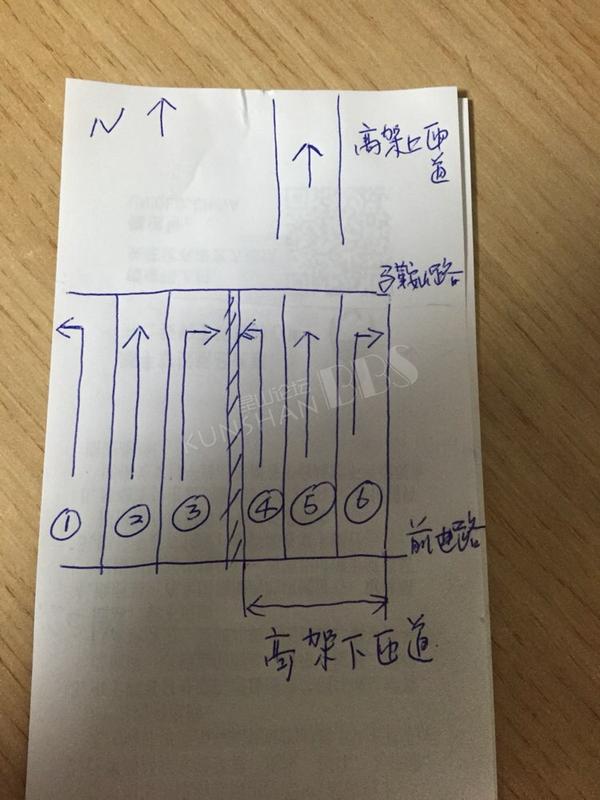 N
高架上匝道
马鞍山路
① ② ③ ④ ⑤ ⑥
昆山论坛
KUNSHAN BBS
前进路
高架下匝道